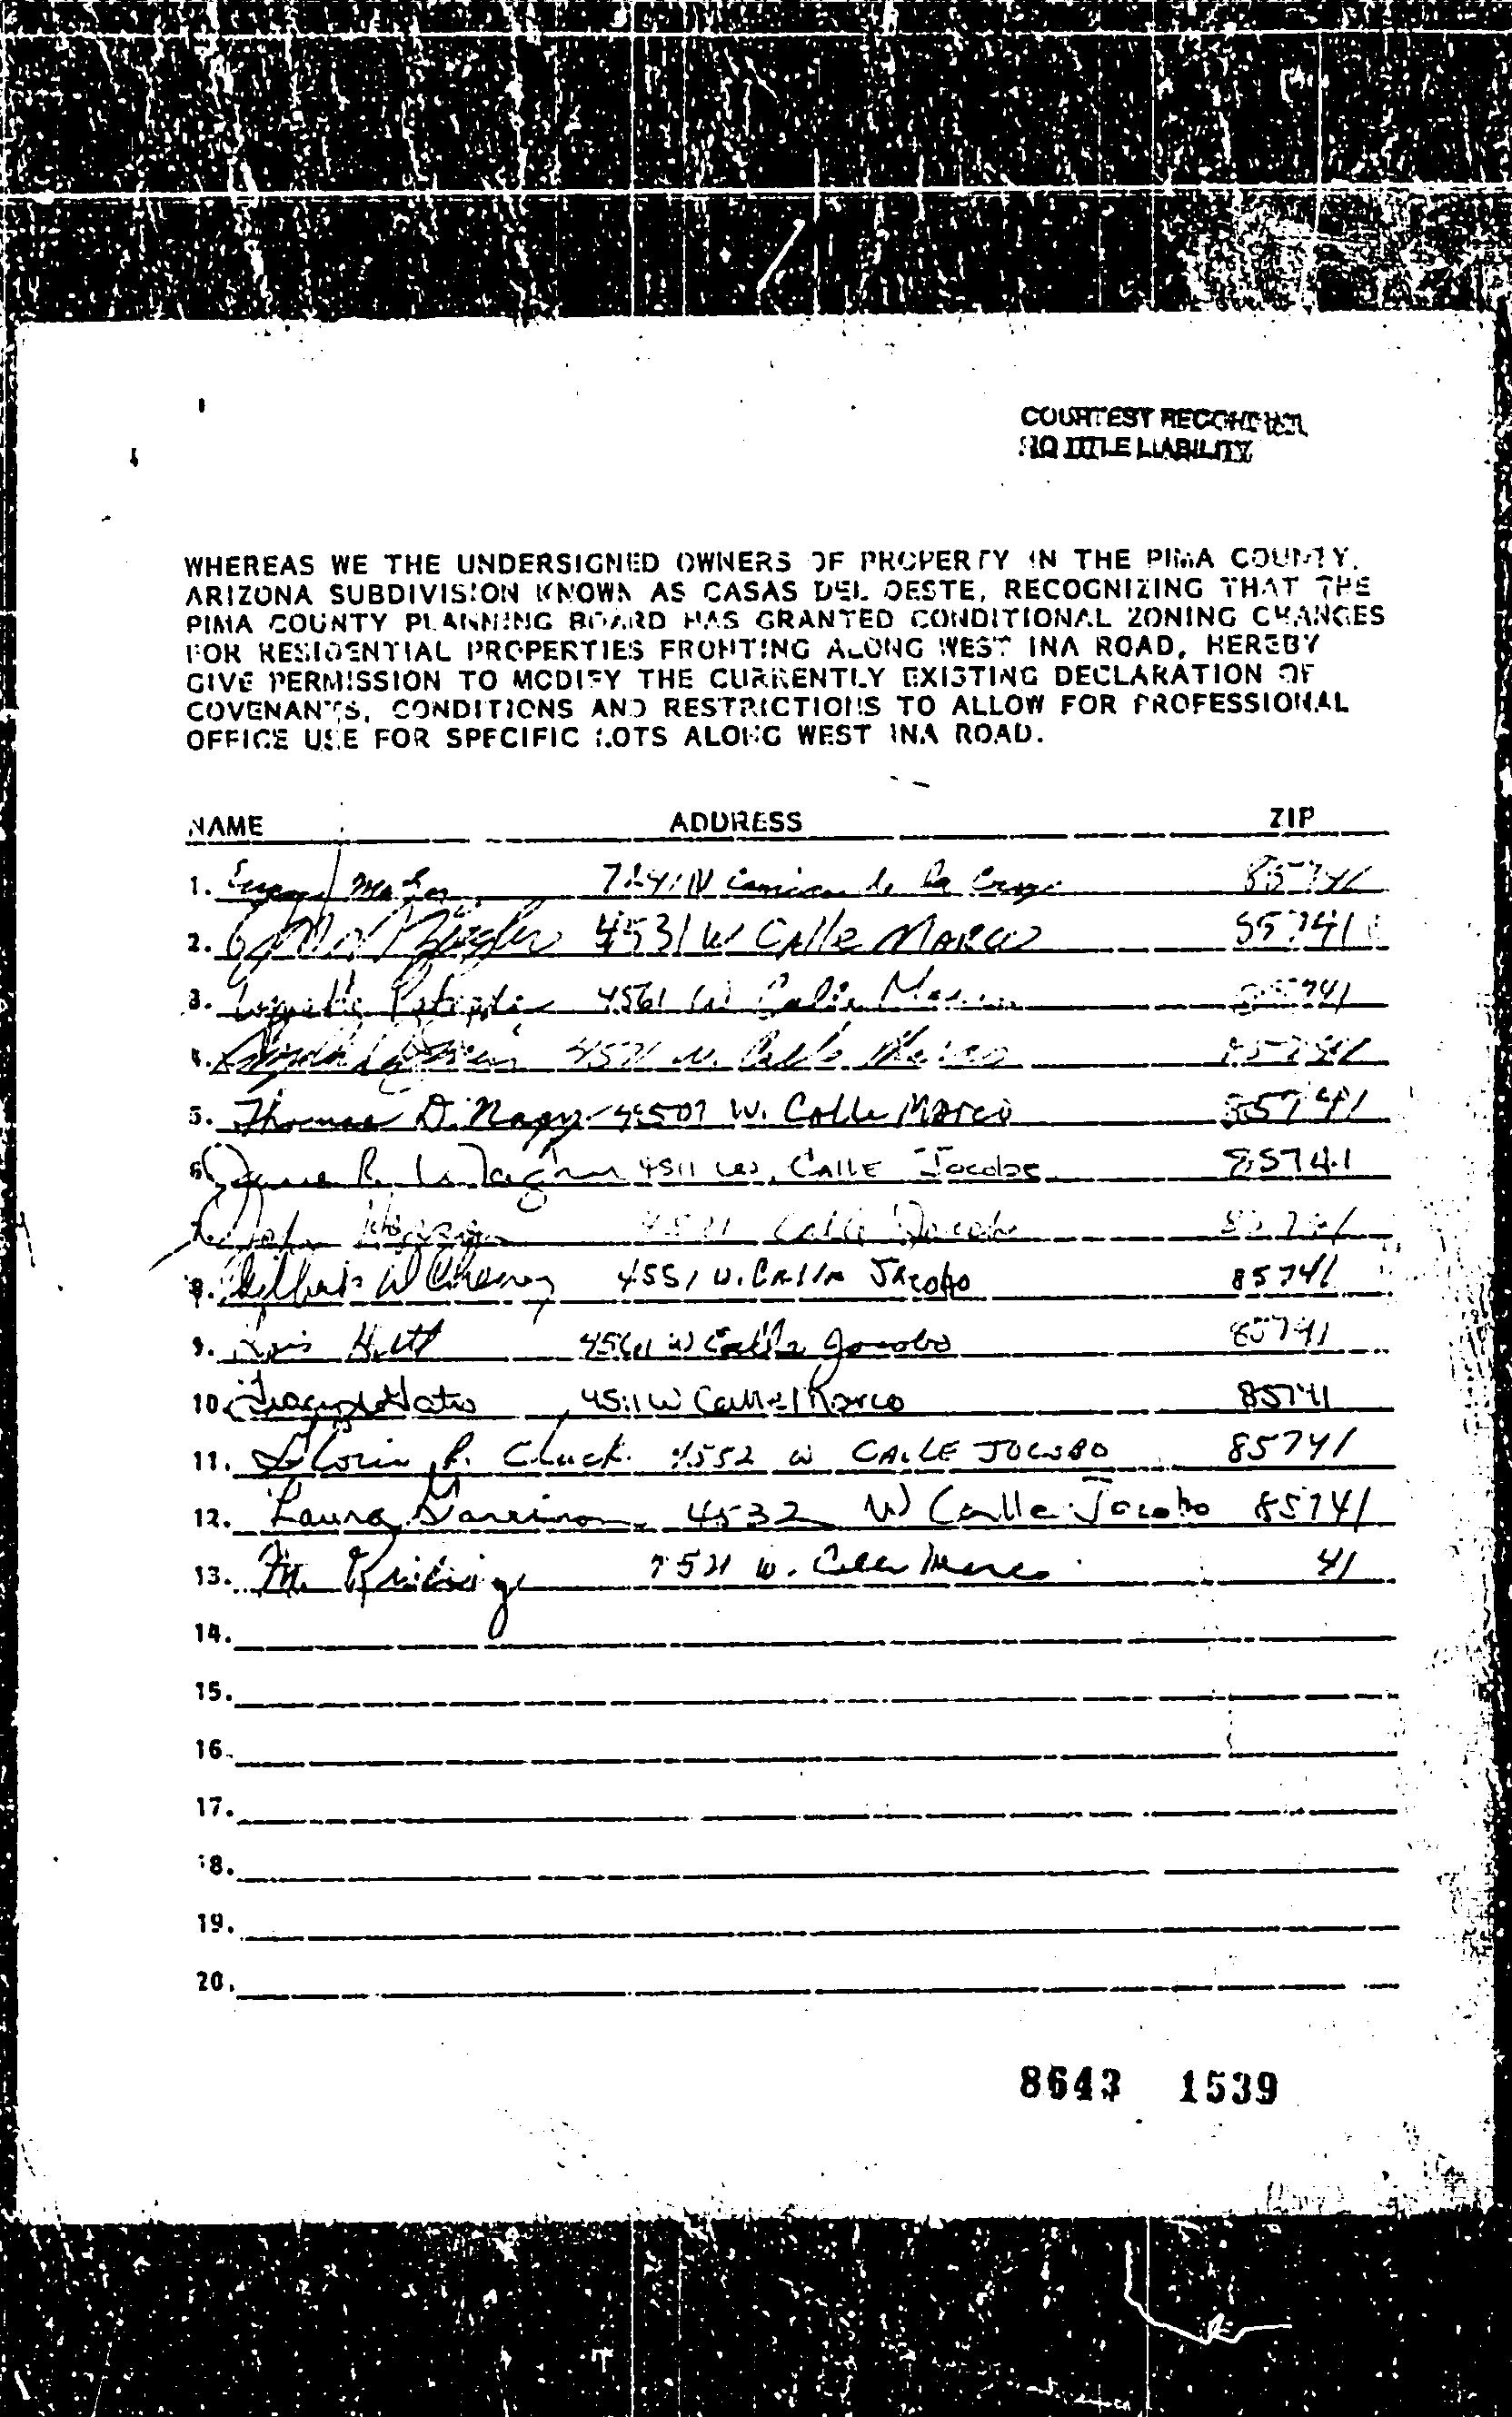 COURTESY RECORDING
NO TITLE LIABILITY
WHEREAS WE THE UNDERSIGNED OWNERS OF PROPERTY IN THE PIMA COUNTY,
ARIZONA SUBDIVISION KNOWN AS CASAS DEL OESTE, RECOGNIZING THAT THE
PIMA COUNTY PLANNING BOARD HAS GRANTED CONDITIONAL ZONING CHANGES
FOR RESIDENTIAL PROPERTIES FRONTING ALONG WEST INA ROAD, HEREBY
GIVE PERMISSION TO MODIFY THE CURRENTLY EXISTING DECLARATION OF
COVENANTS, CONDITIONS AND RESTRICTIONS TO ALLOW FOR PROFESSIONAL
OFFICE USE FOR SPECIFIC LOTS ALONG WEST INA ROAD.
NAME ADDRESS ZIP
1. 85741
2. 4531 W Calle Marco 85741
3. 4561 W 85741
4. 4571 W. Calle Marco 85741
5. Thomas D. Nagy 4507 W. Calle Marco 85741
6. 4511 W. CALLE Jacobo 85741
7. John Calle Jacobo 85741
8. W Cheney 4551 W. Calle Jacobo 85741
9. Lois Hutt W Calle Jacobo 85741
10. W Calle Marco 85741
11. P. Cluck 4552 W CALLE JOCOBO 85741
12. Laura Garrison 4532 W Calle Jacobo 85741
13. M. W. Calle Marco 41
14.
15.
16.
17.
18.
19.
20.
8643 1539